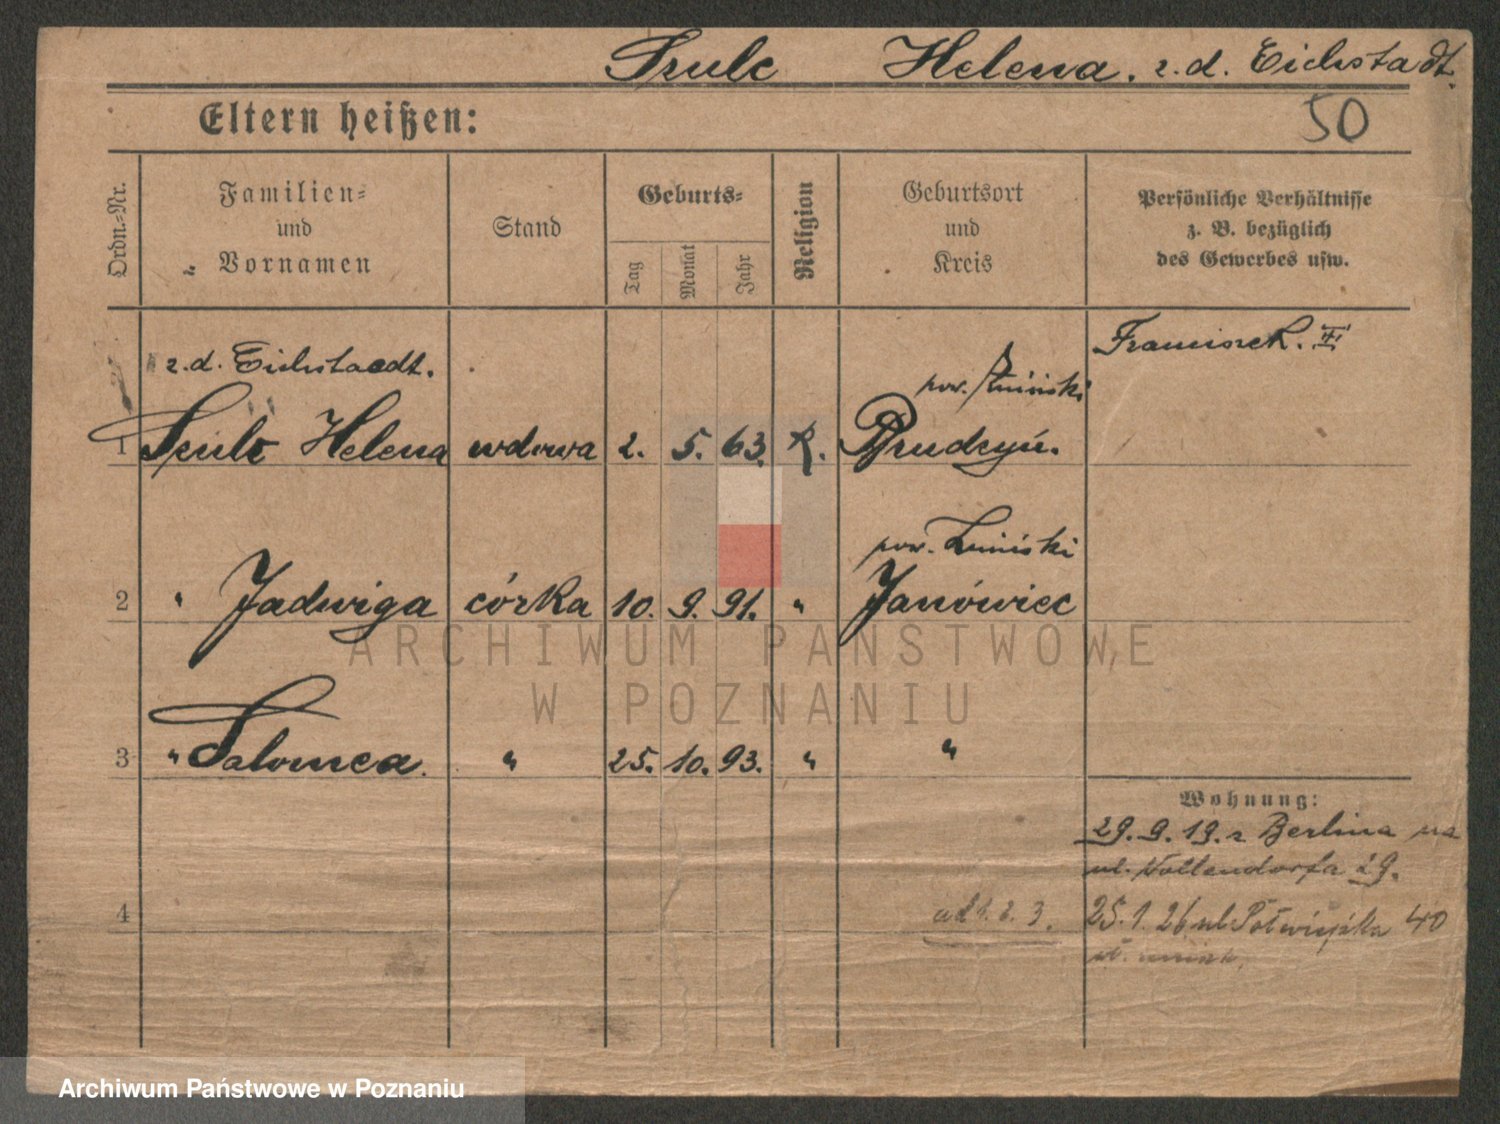 Szulc Helena. z. d. Eichstadt.
Eltern heißen:
50
Ordn.=Nr.
Familien=
und
Vornamen
Stand
Geburts=
Tag
Monat
Jahr
Religion
Geburtsort
und
Kreis
Persönliche Verhältnisse
z. B. bezüglich
des Gewerbes usw.
Franciszek. II
z. d. Eichstaedt.
pow. Żniński
1 Szulc Helena wdowa 2. 5. 63. K.
pow. Żniński
2 " Jadwiga córka 10. 9. 91. " Janówiec
3 " Salomea. " 25. 10. 93. " "
Wohnung:
29. 9. 19. z Berlina na
ul. 29.
4 ad 1. 2. 3. 25. 1. 26 ul. 40
ARCHIWUM PAŃSTWOWE
W POZNANIU
Archiwum Państwowe w Poznaniu